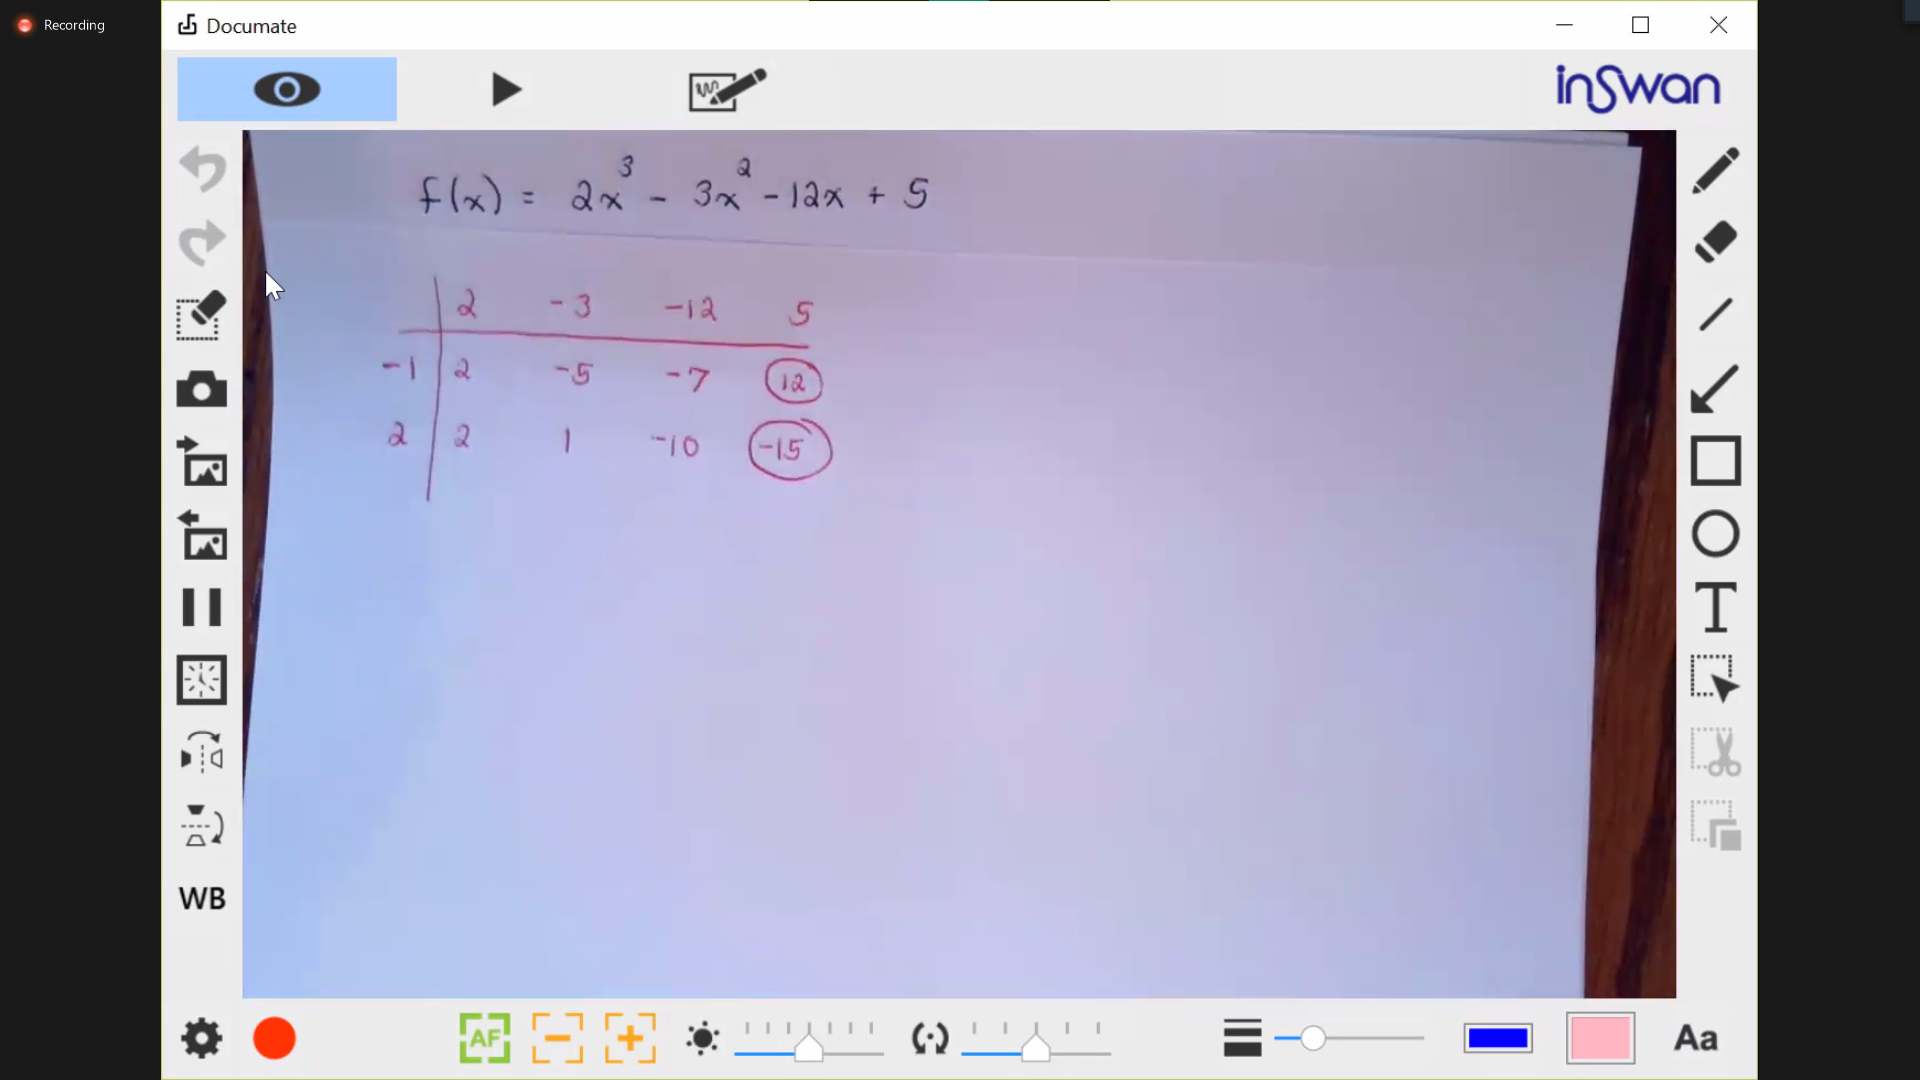 Recording
Documate
inSwan
f(x) = 2x³ - 3x² - 12x + 5
2 -3 -12 5
-1 2 -5 -7 12
2 2 1 -10 -15
WB
AF
T
Aa